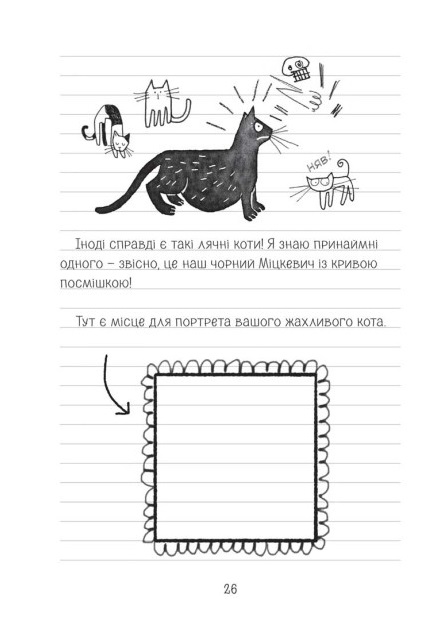 НЯВ!
Іноді справді є такі лячні коти! Я знаю принаймні
одного – звісно, це наш чорний Міцкевич із кривою
посмішкою!
Тут є місце для портрета вашого жахливого кота.
26